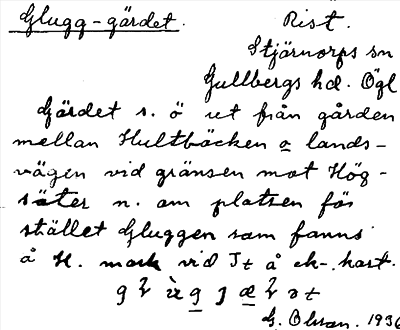 Glugg-gärdet.
Rist.
Stjärnorps sn
Gullbergs hd. Ögl
Gärdet s. ö ut från gården
mellan Hultbäcken o lands-
vägen vid gränsen mot Hög-
säter n. om platsen för
stället Gluggen som fanns
å H. mark vid It å ek-.kart.
G. Olsson. 1936